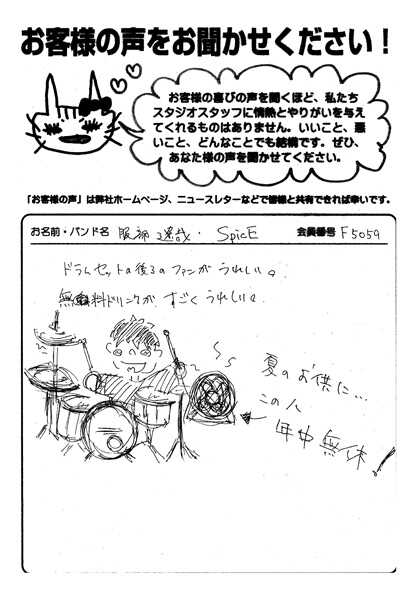 お客様の声をお聞かせください！
お客様の喜びの声を聞くほど、私たち
スタジオスタッフに情熱とやりがいを与え
てくれるものはありません。いいこと、悪
いこと、どんなことでも結構です。ぜひ、
あなた様の声を聞かせてください。
「お客様の声」は弊社ホームページ、ニュースレターなどで皆様と共有できれば幸いです。
お名前・バンド名 服部 哉・SpicE 会員番号 F5059
ドラムセットの後ろのファンがうれしい。
無料ドリンクが すごく うれしい。
夏のお供に…
この人
年中無休！